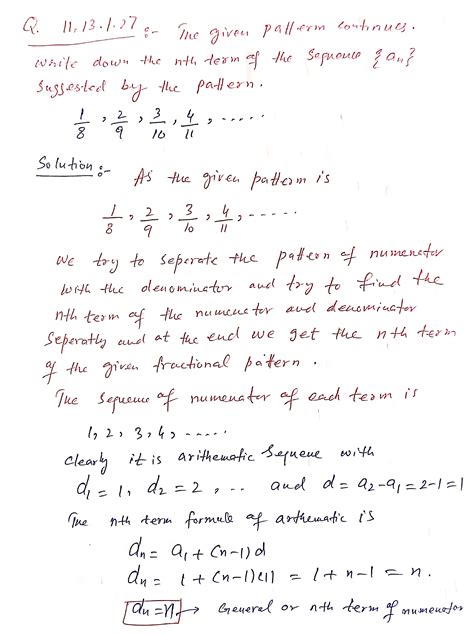 Q. 11.13.1.27 :- The given pattern continues.
write down the nth term of the Sequence {an}
Suggested by the pattern.
1/8, 2/9, 3/10, 4/11, .....
Solution :- As the given pattern is
1/8, 2/9, 3/10, 4/11, .....
we try to seperate the pattern of numenator
with the denominator and try to find the
nth term of the numenator and denominator
Seperatly and at the end we get the nth term
of the given fractional pattern.
The sequence of numenator of each term is
1, 2, 3, 4, .....
clearly it is arithematic Sequene with
a1 = 1, a2 = 2, .. and d = a2 - a1 = 2-1 = 1
The nth term formula of arthematic is
an = a1 + (n-1) d
an = 1 + (n-1)(1) = 1 + n - 1 = n.
an = n. → General or nth term of numenator